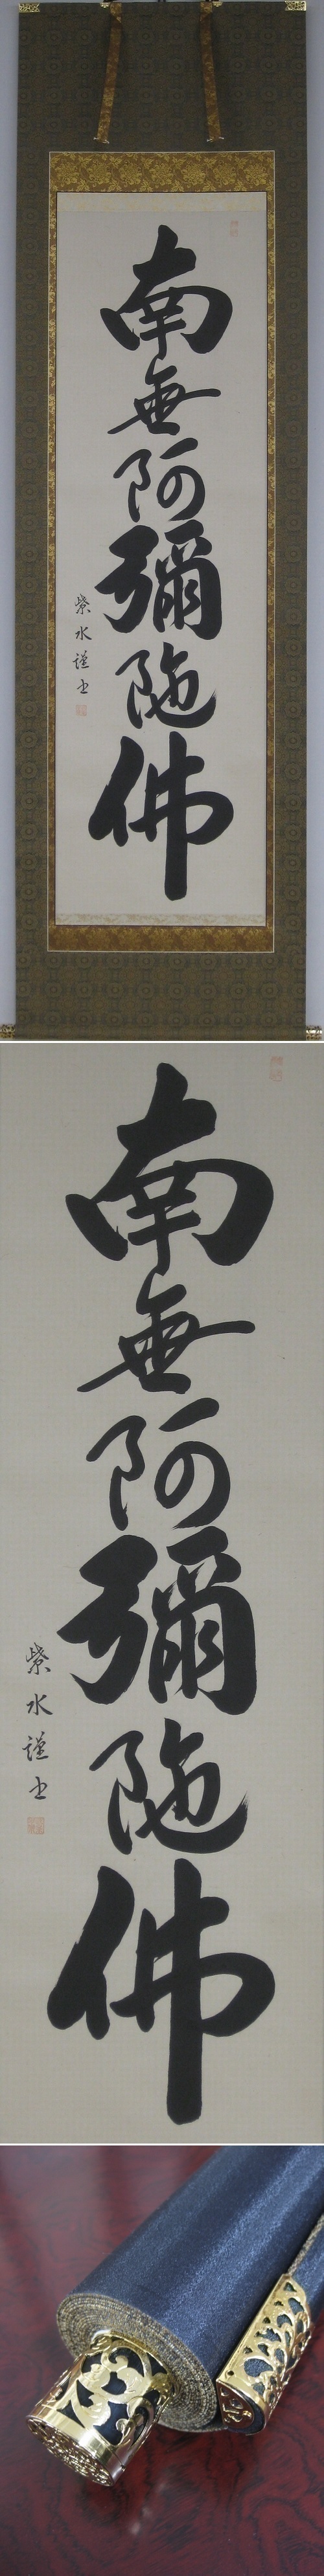 南無阿彌陀佛
紫水謹書
南無阿彌陀佛
紫水謹書